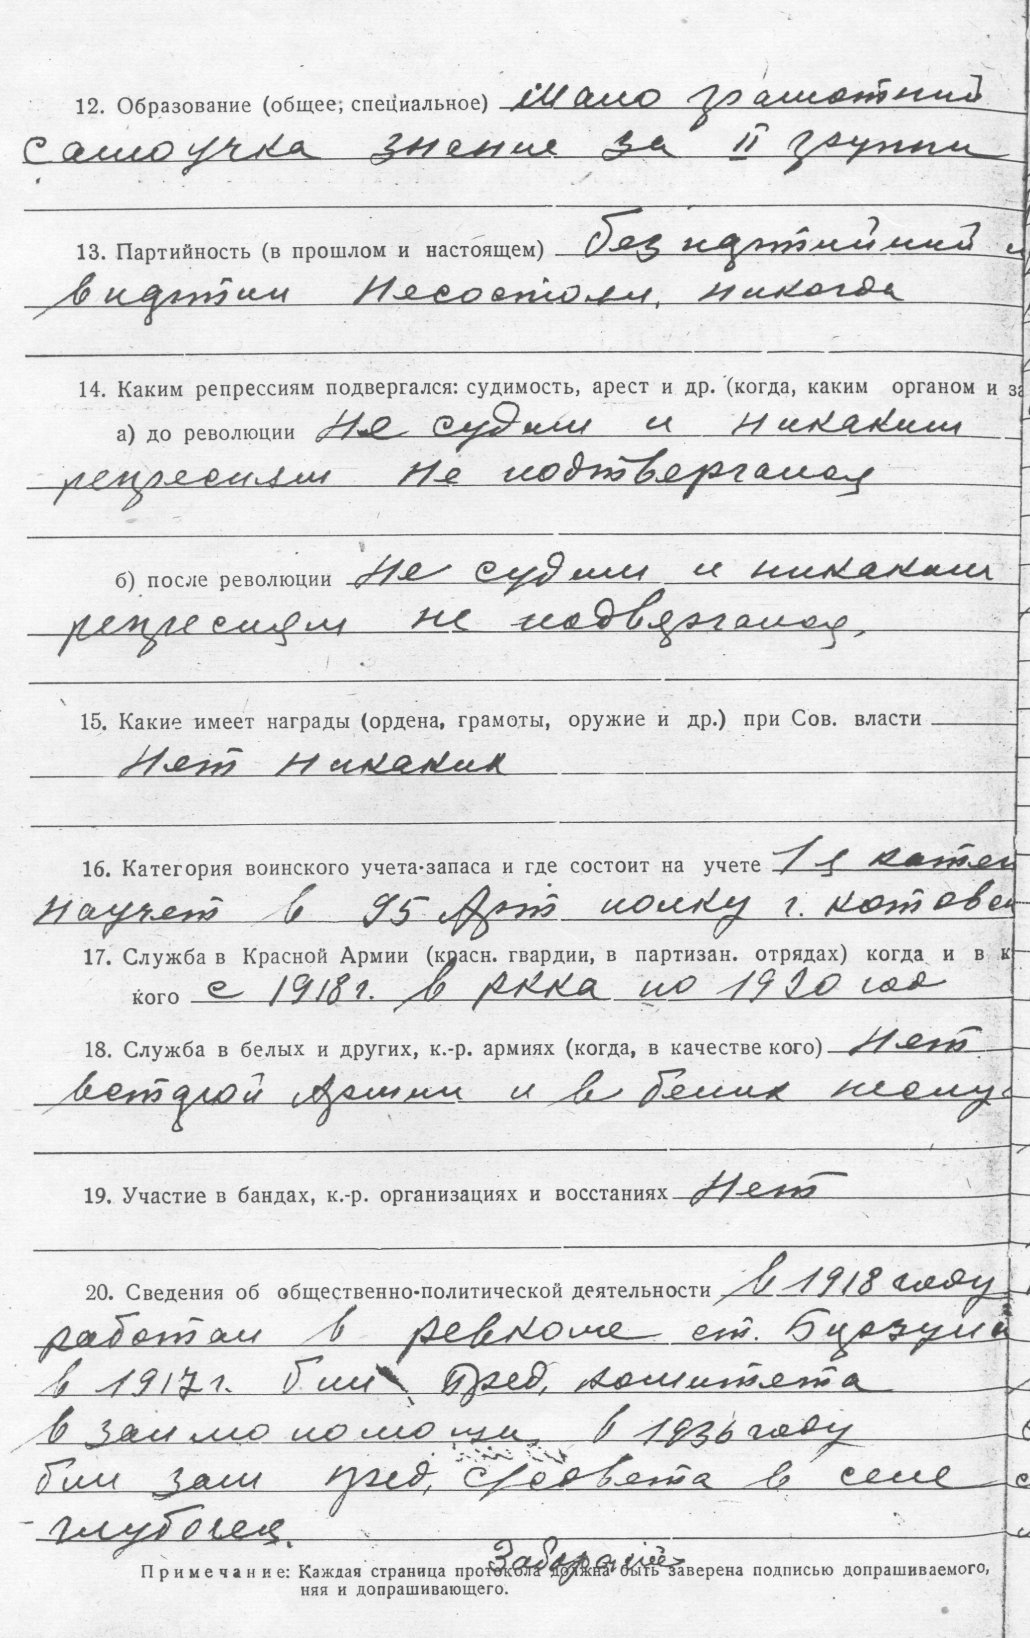 12. Образование (общее; специальное) Мало грамотний
самоучка знение за II групи
13. Партийность (в прошлом и настоящем) без партийний и
в партии несостоял, никогда
14. Каким репрессиям подвергался: судимость, арест и др. (когда, каким органом и за
а) до революции Не судим и никаким
репресиям не подтвергался
б) после революции Не судим и никаким
репресиям не подвергался,
15. Какие имеет награды (ордена, грамоты, оружие и др.) при Сов. власти
Нет никаких
16. Категория воинского учета-запаса и где состоит на учете 1я катег
научет в 95 Арт полку г. котовск
17. Служба в Красной Армии (красн. гвардии, в партизан. отрядах) когда и в к
кого с 1918г. в ркка по 1920 год
18. Служба в белых и других, к.-р. армиях (когда, в качестве кого) Нет
встарой Армии и в белих неслу
19. Участие в бандах, к.-р. организациях и восстаниях Нет
20. Сведения об общественно-политической деятельности в 1918 году
работал в ревкоме ст. Бирзула
в 1917г. бил пред, комитета
взаимопомощи, в 1936 году
бил зам пред, с/совета в селе
глубочек.
Примечание: Каждая страница протокола должна быть заверена подписью допрашиваемого,
няя и допрашивающего.